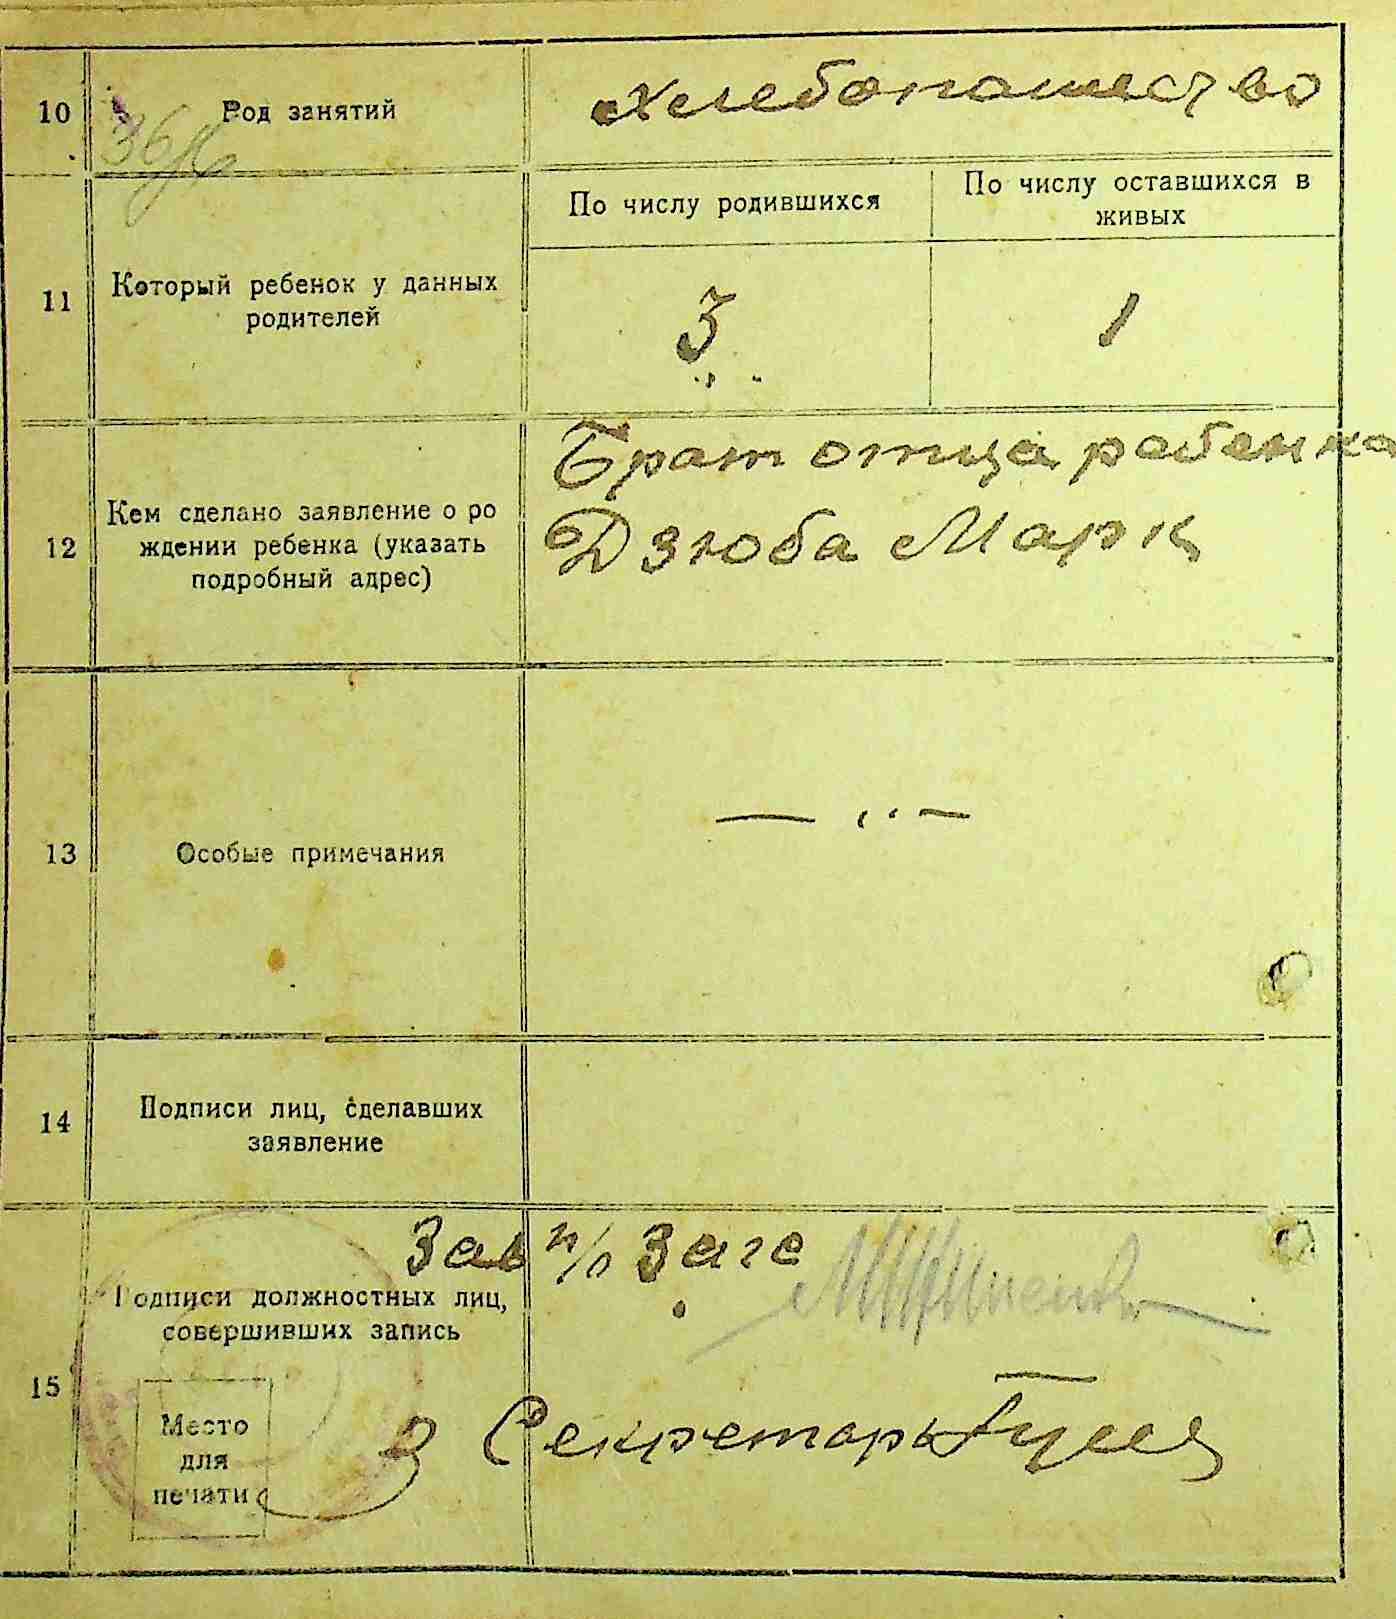 10
Род занятий
Хлебопашество
По числу родившихся
По числу оставшихся в
живых
11
Который ребенок у данных
родителей
3
1
12
Кем сделано заявление о ро
ждении ребенка (указать
подробный адрес)
Брат отца рабенка
Дзюба Марк
13
Особые примечания
14
Подписи лиц, сделавших
заявление
15
Зав п/о Загс
Подписи должностных лиц,
совершивших запись
Место
для
печати
Секретарь